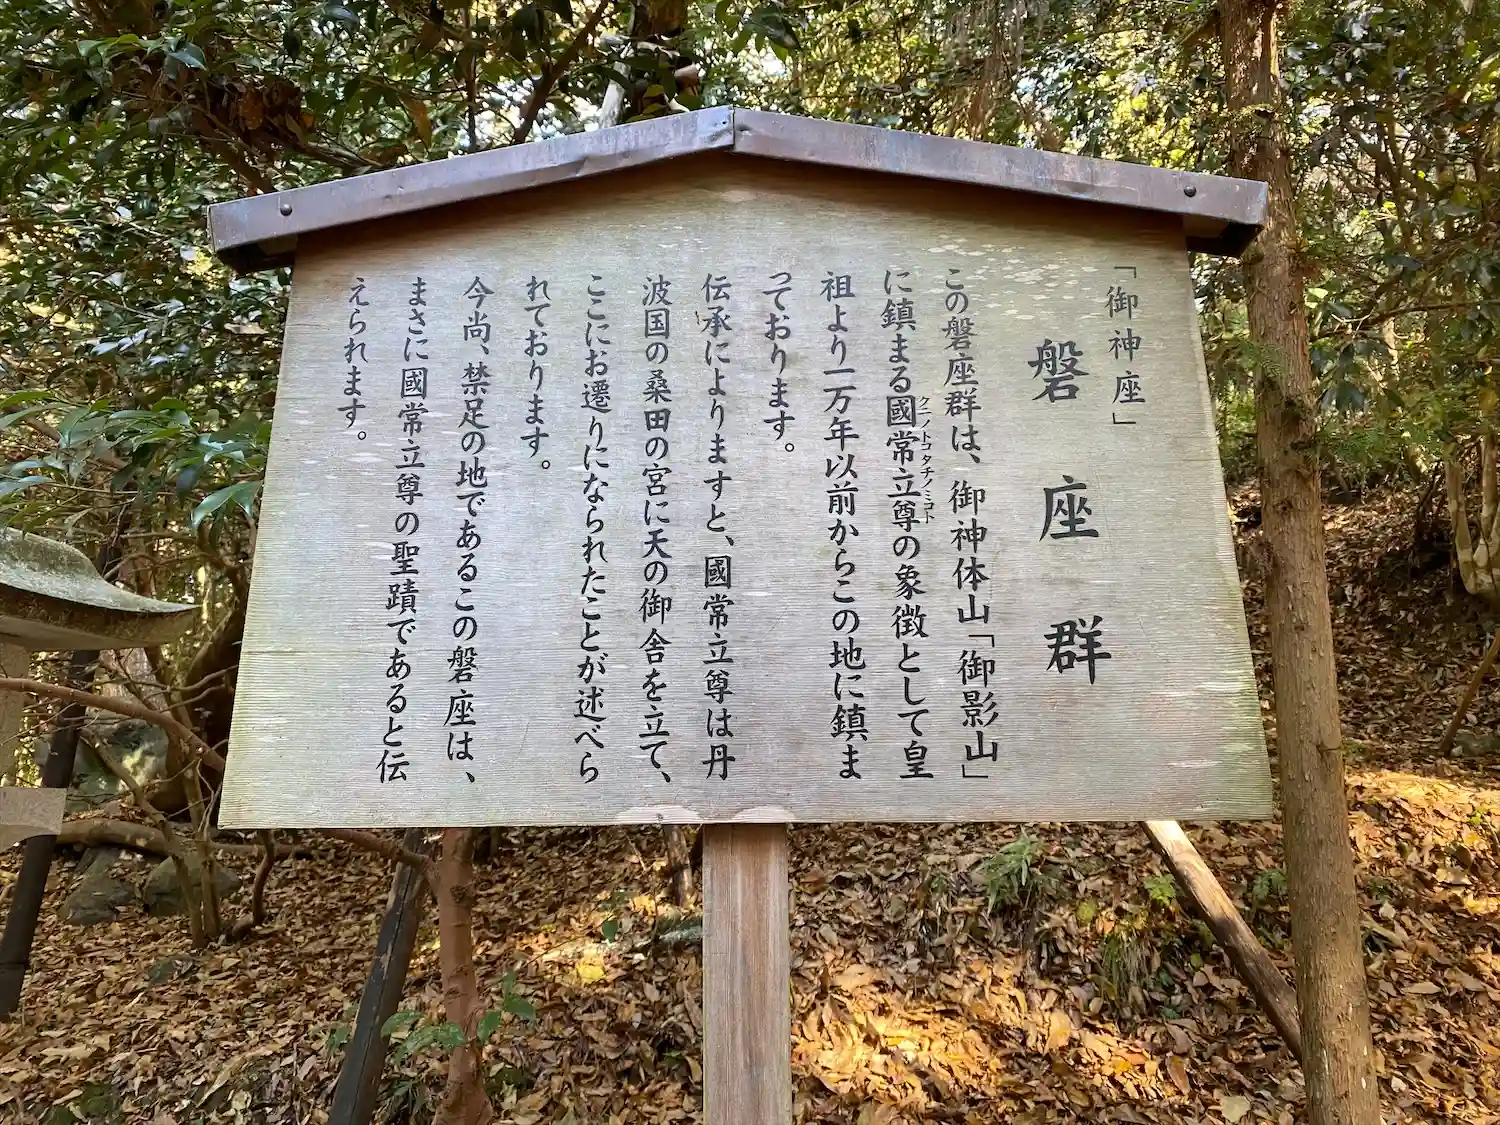 「御神座」
磐座群
この磐座群は、御神体山「御影山」
に鎮まる國常立尊の象徴として皇
クニノトコタチノミコト
祖より一万年以前からこの地に鎮ま
っております。
伝承によりますと、國常立尊は丹
波国の桑田の宮に天の御舎を立て、
ここにお遷りになられたことが述べら
れております。
今尚、禁足の地であるこの磐座は、
まさに國常立尊の聖蹟であると伝
えられます。